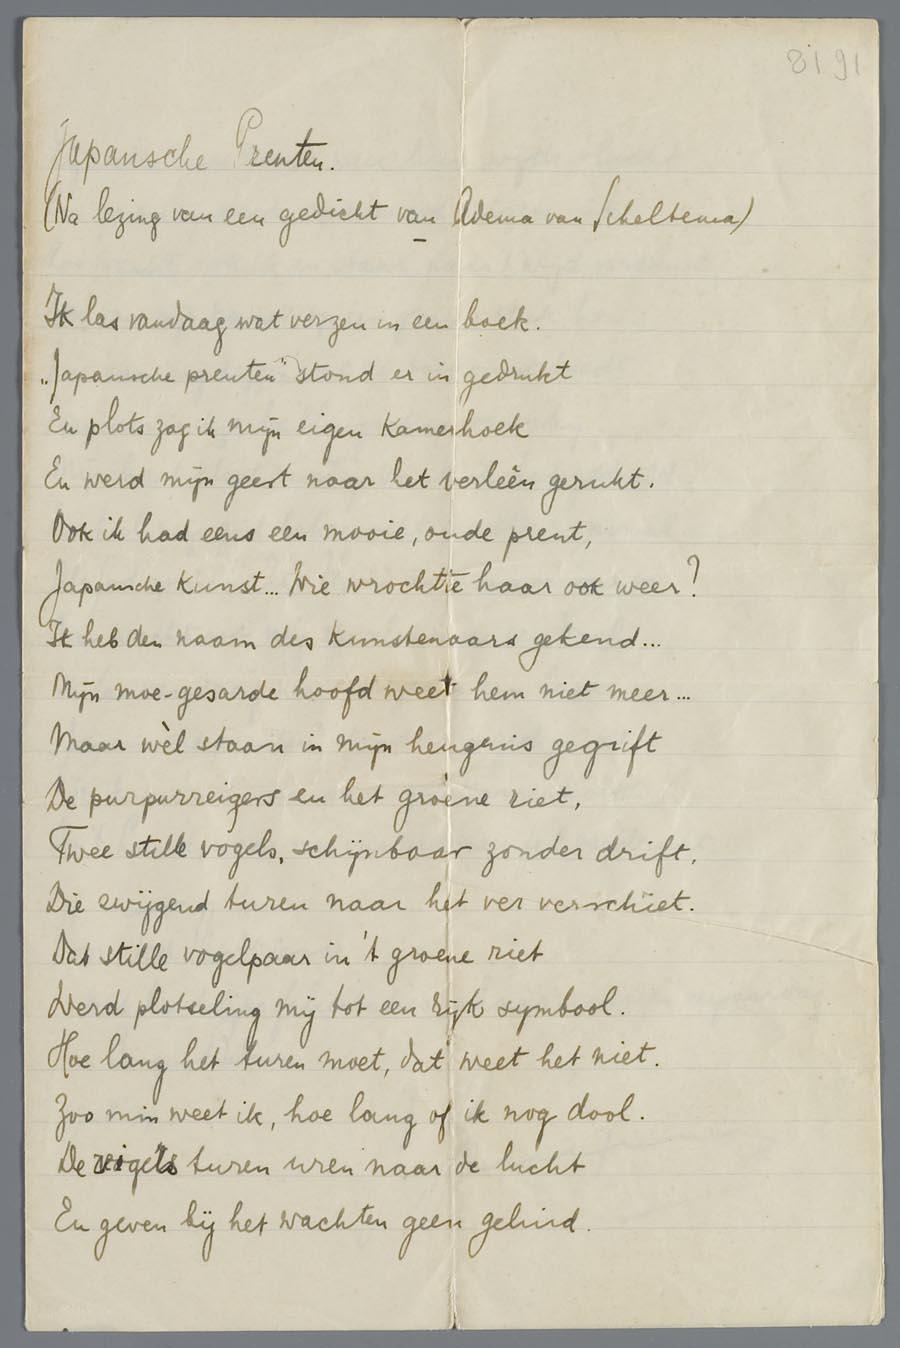 8191
Japansche Prenten.
(Na lezing van een gedicht van Adema van Scheltema)
Ik las vandaag wat verzen in een boek.
„Japansche prenten” stond er in gedrukt
En plots zag ik mijn eigen kamerhoek
En werd mijn geest naar het verleên gerukt.
Ook ik had eens een mooie, oude prent,
Japansche kunst... Wie wrochtte haar ook weer?
Ik heb den naam des kunstenaars gekend...
Mijn moe-gesarde hoofd weet hem niet meer...
Maar wèl staan in mijn heugenis gegrift
De purpurreigers en het groene riet,
Twee stille vogels, schijnbaar zonder drift,
Die zwijgend turen naar het ver verschiet.
Dat stille vogelpaar in 't groene riet
Werd plotseling mij tot een rijk symbool.
Hoe lang het turen moet, dat weet het niet.
Zoo min weet ik, hoe lang of ik nog dool.
De turen uren naar de lucht
En geven bij het wachten geen geluid.